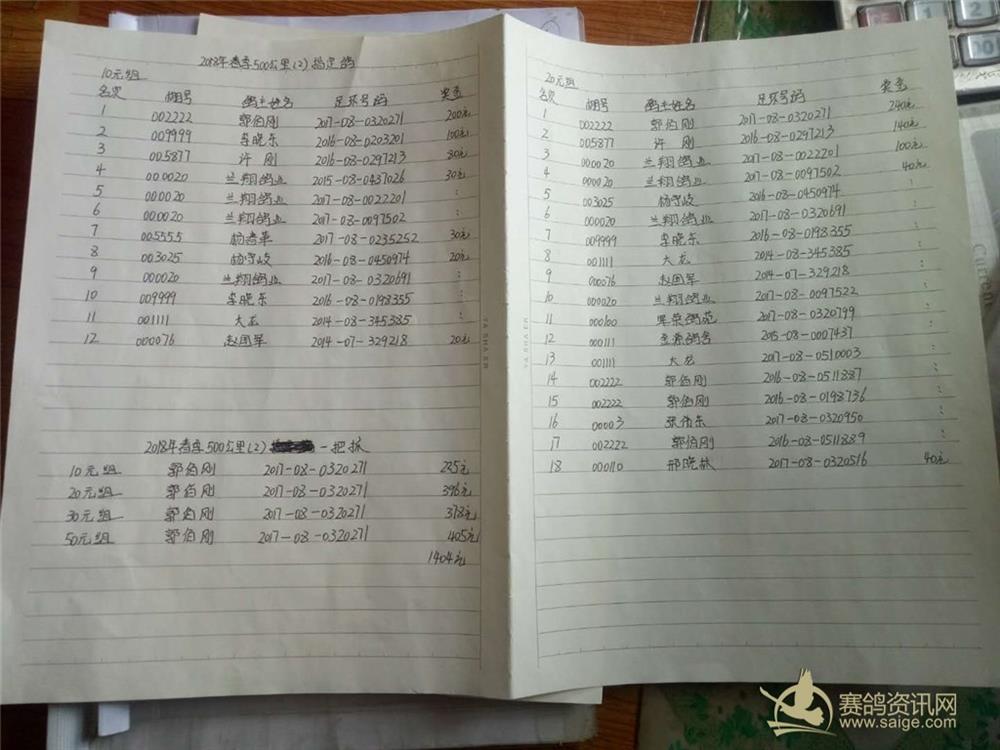 2018年春季500公里(2)指定鸽
10元组
名次 棚号 鸽主姓名 足环号码 奖金
1 002222 郭伯刚 2017-08-0320271 200元
2 009999 李晓东 2016-08-0203201 100元
3 005877 许刚 2016-08-0297213 80元
4 000020 兰翔鸽业 2015-08-0437026 30元
5 000020 兰翔鸽业 2017-08-0022201 :
6 000020 兰翔鸽业 2017-08-0097502 :
7 005555 杨春革 2017-08-0235252 30元
8 003025 杨守岐 2016-08-0450974 20元
9 000020 兰翔鸽业 2017-08-0320691 :
10 009999 李晓东 2016-08-0198355 :
11 001111 大龙 2014-08-345385 :
12 000076 赵国军 2014-07-329218 20元
2018年春季500公里(2) 一把抓
10元组 郭伯刚 2017-08-0320271 225元
20元组 郭伯刚 2017-08-0320271 396元
30元组 郭伯刚 2017-08-0320271 378元
50元组 郭伯刚 2017-08-0320271 405元
1404元
YA SHA ER
20元组
名次 棚号 鸽主姓名 足环号码 奖金
1 002222 郭伯刚 2017-08-0320271 240元
2 005877 许刚 2016-08-0297213 140元
3 000020 兰翔鸽业 2017-08-0022201 100元
4 000020 兰翔鸽业 2017-08-0097502 40元
5 003025 杨守岐 2016-08-0450974 :
6 000020 兰翔鸽业 2017-08-0320691 :
7 009999 李晓东 2016-08-0198355 :
8 001111 大龙 2014-08-345385 :
9 000076 赵国军 2014-07-329218 :
10 000020 兰翔鸽业 2017-08-0097522 :
11 000100 军荣鸽苑 2017-08-0320799 :
12 000111 鸽舍 2015-08-0007437 :
13 001111 大龙 2017-08-0510003 :
14 002222 郭伯刚 2016-08-0511887 :
15 002222 郭伯刚 2016-08-0198736 :
16 00003 张伟东 2017-08-0320950 :
17 002222 郭伯刚 2016-08-0511889 :
18 000110 邢晓林 2017-08-0320516 40元
YA SHA ER
赛鸽资讯网
www.saige.com